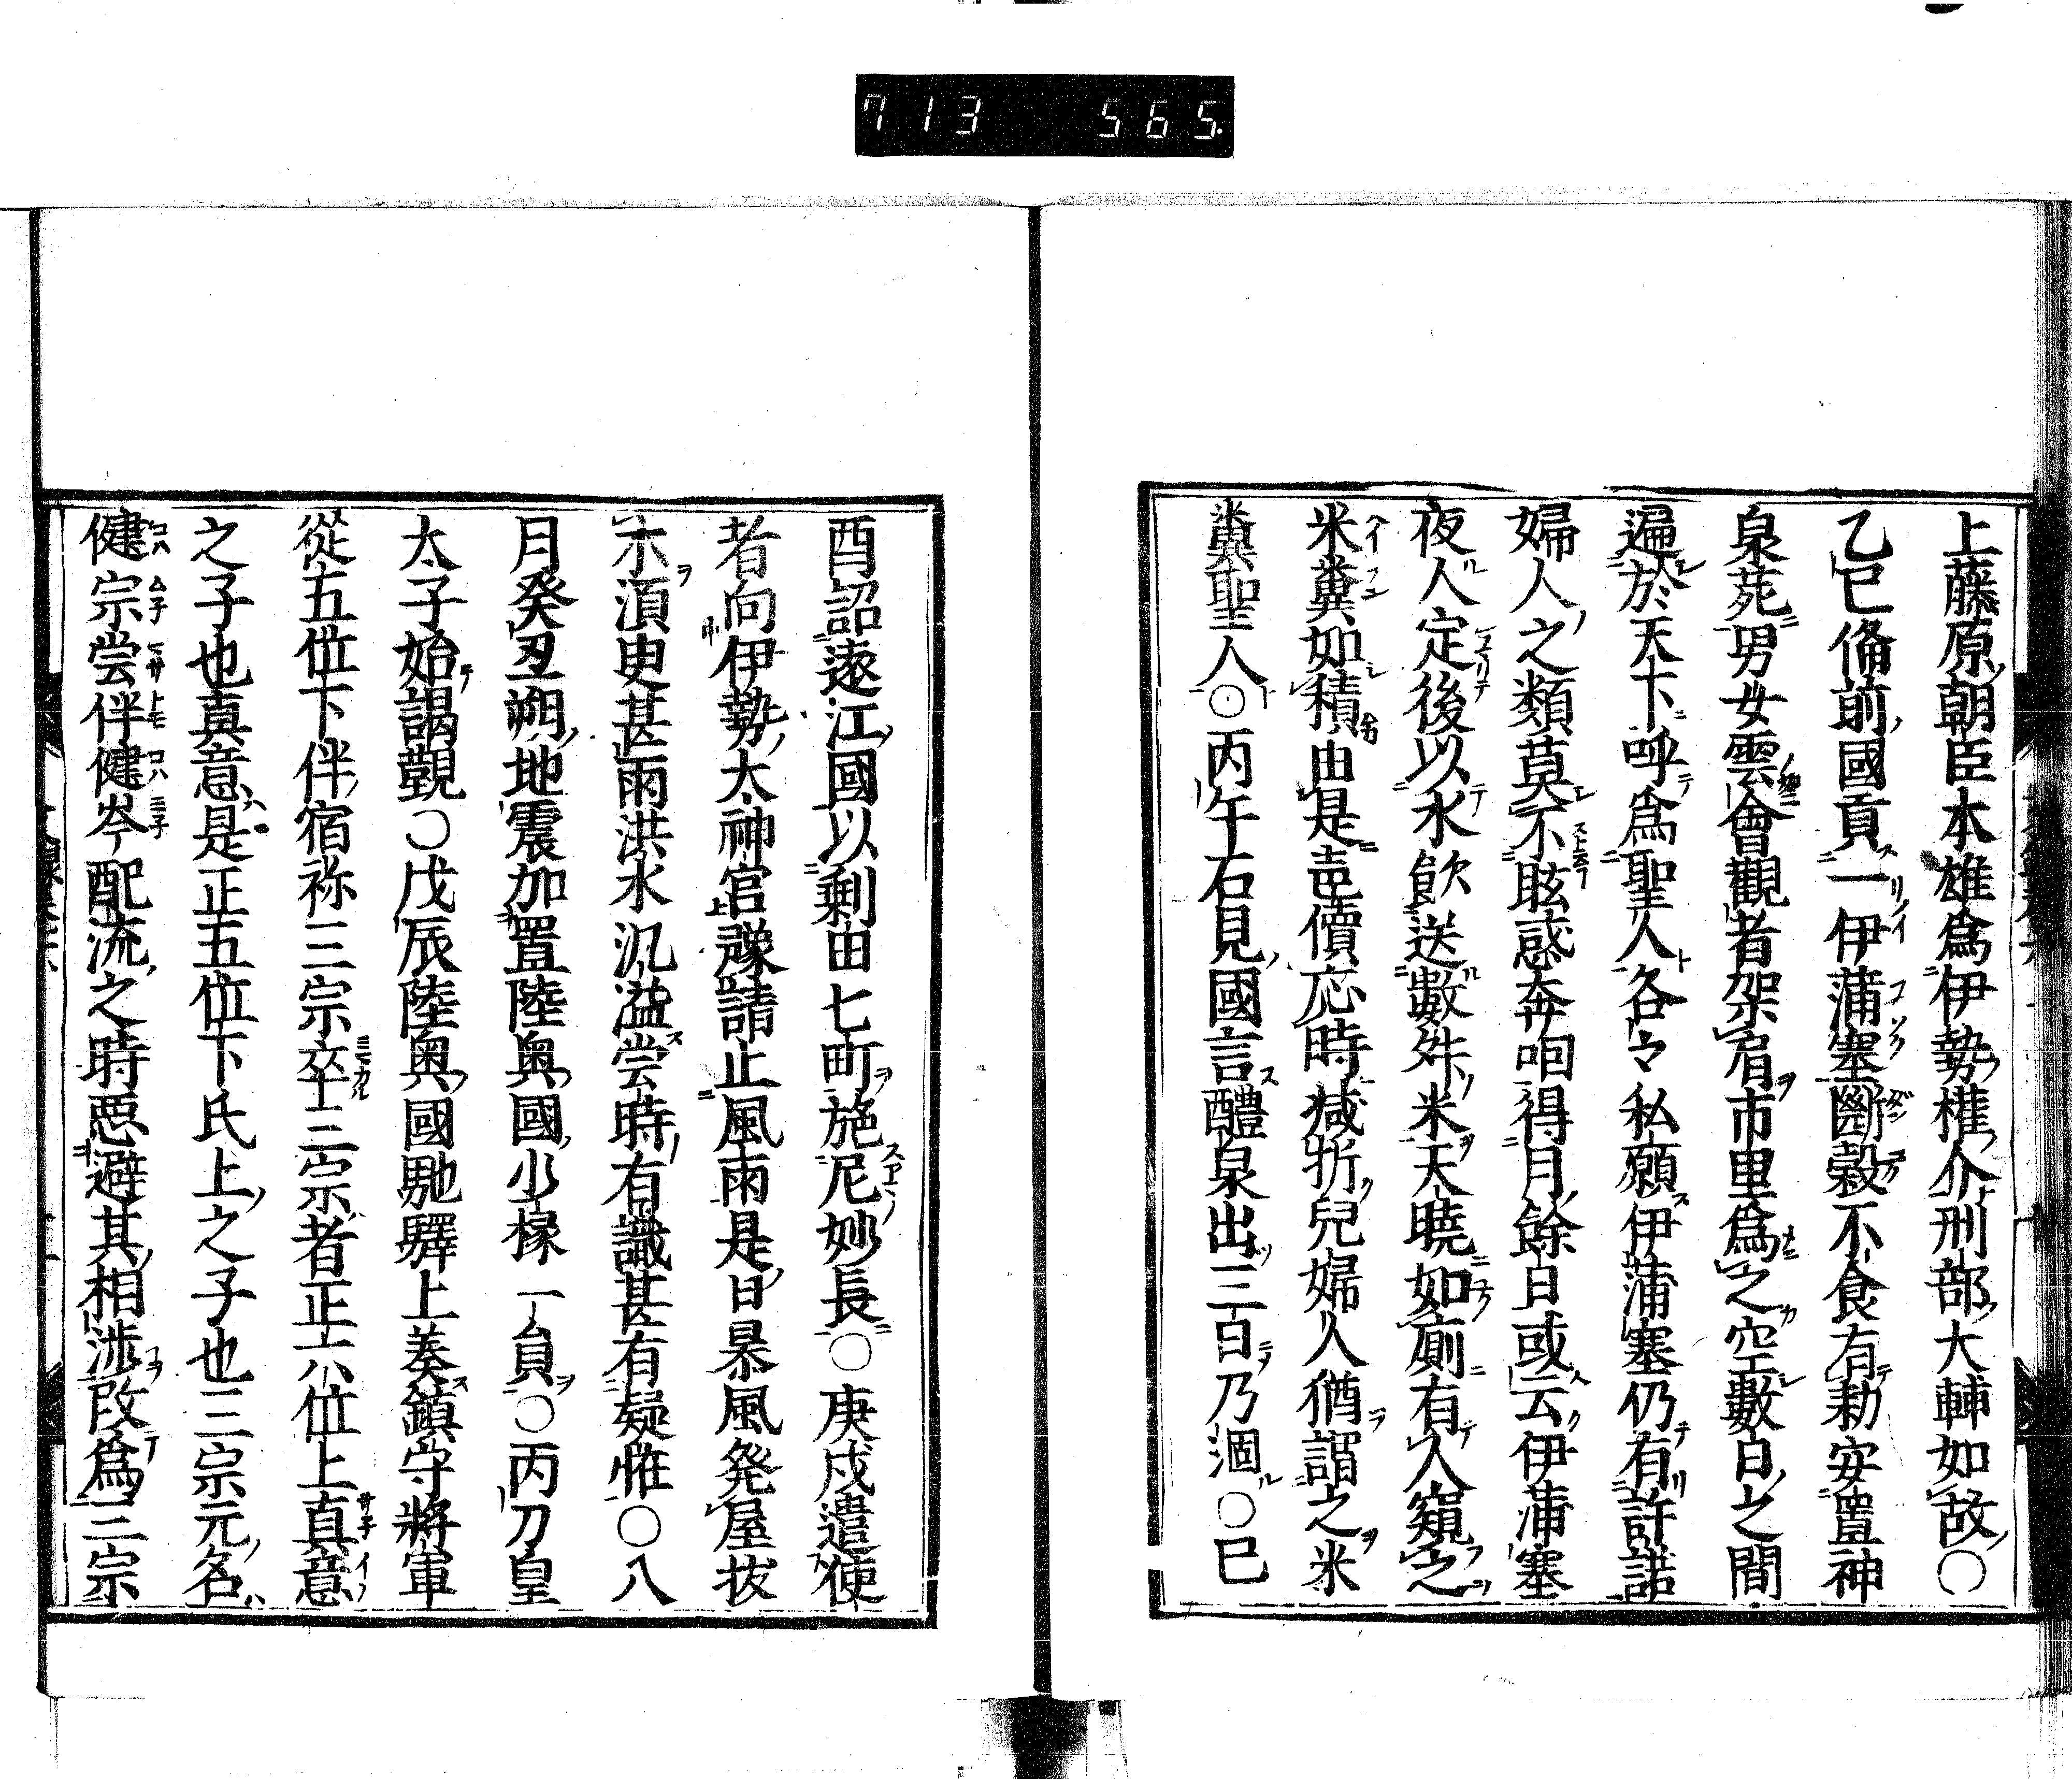 713 565.
上藤原朝臣本雄爲伊勢權介刑部大輔如故○
乙巳俻前國貢一伊蒲塞斷穀不食有勅安置神
泉苑男女雲會觀者架肩市里爲之空數日之間
遍於天下呼爲聖人各々私願伊蒲塞仍有許諾
婦人之類莫不眩惑奔咽得月餘日或云伊蒲塞
夜人定後以水飲送數舛米天曉如廁有人窺之
米糞如積由是聲價応時减折兒婦人猶謂之米
糞聖人○丙午石見國言醴泉出三日乃涸○己
酉詔遠江國以剩田七町施尼妙長○庚戌遣使
者向伊勢太神宮豫請止風雨是日暴風発屋抜
木湏叟甚雨洪水汎溢尝時有識甚有疑惟○八
月癸丑朔地震加置陸奥國少掾一員○丙刀皇
太子始謁覲○戊辰陸奥國馳驛上奏鎮守將軍
從五位下伴宿祢三宗卒三宗者正六位上真意
之子也真意是正五位下氏上之子也三宗元名
健宗尝伴健岑配流之時惡避其相渉改爲三宗